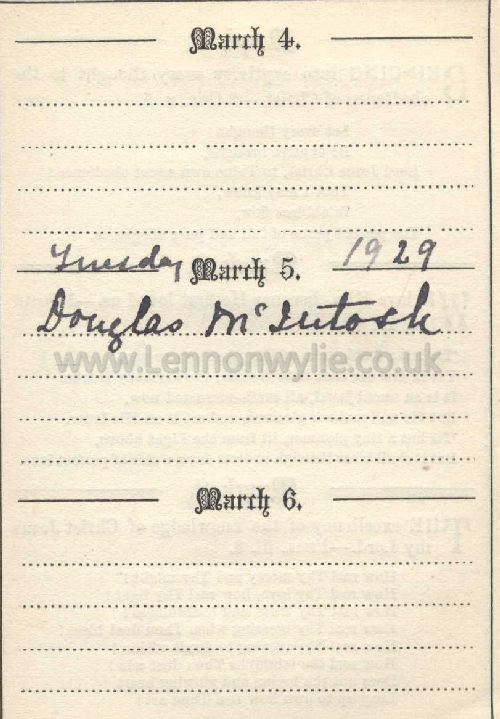 March 4.
Tuesday March 5. 1929
Douglas McIntosh
www.Lennonwylie.co.uk
March 6.